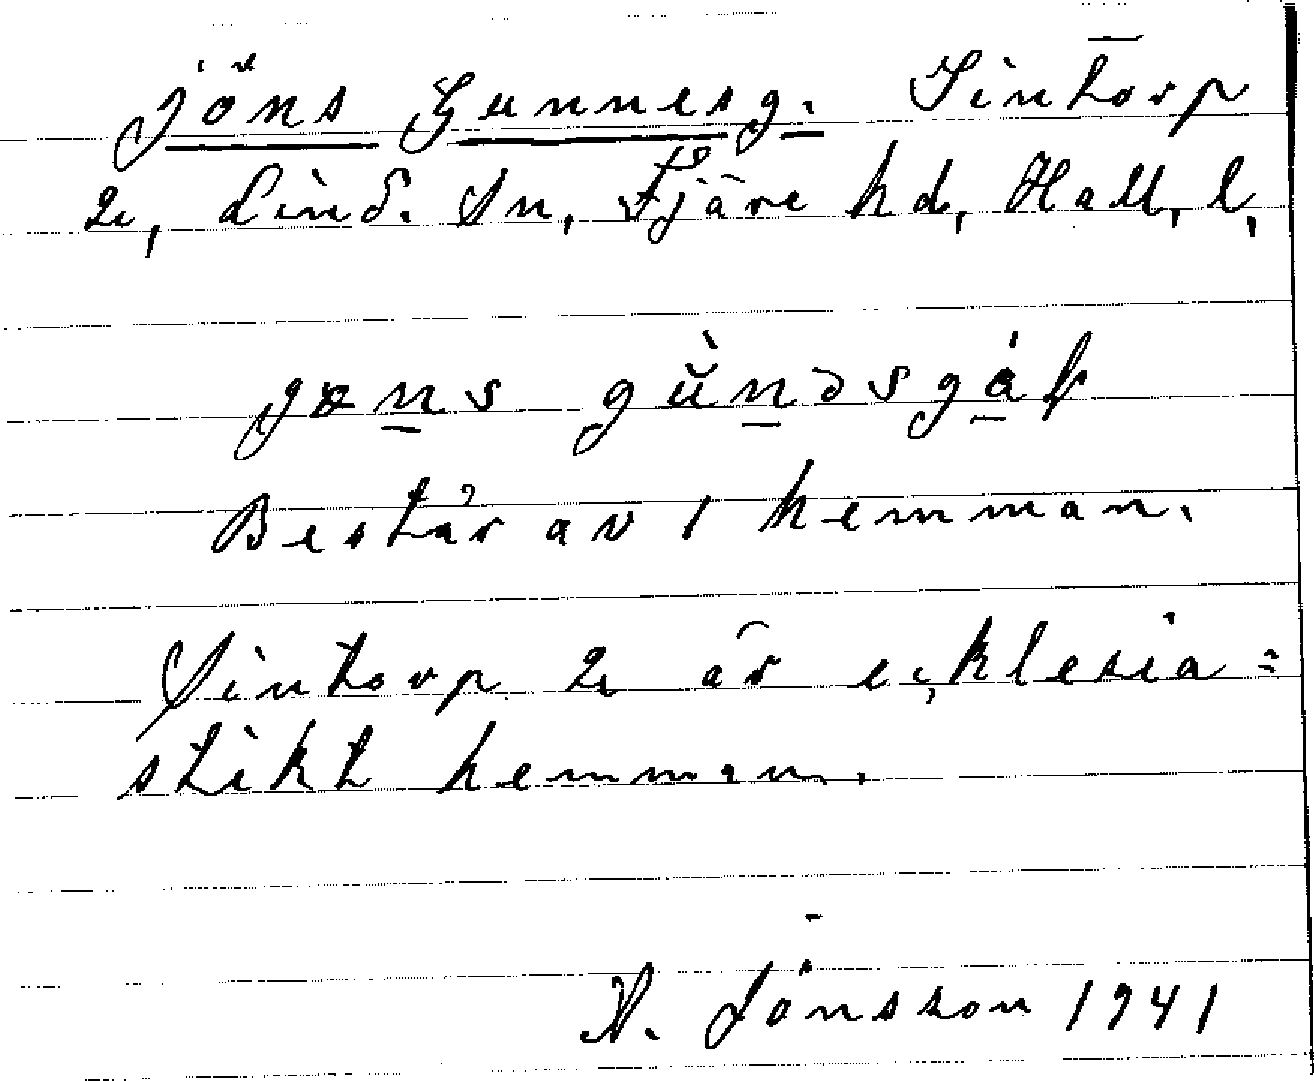 Jöns Gunnesg. Sintorp
2, Lind. sn, Fjäre hd, Hall. l.
Består av 1 hemman.
Sintorp 2 är ecklesia=
stikt hemman.
N. Jönsson 1941